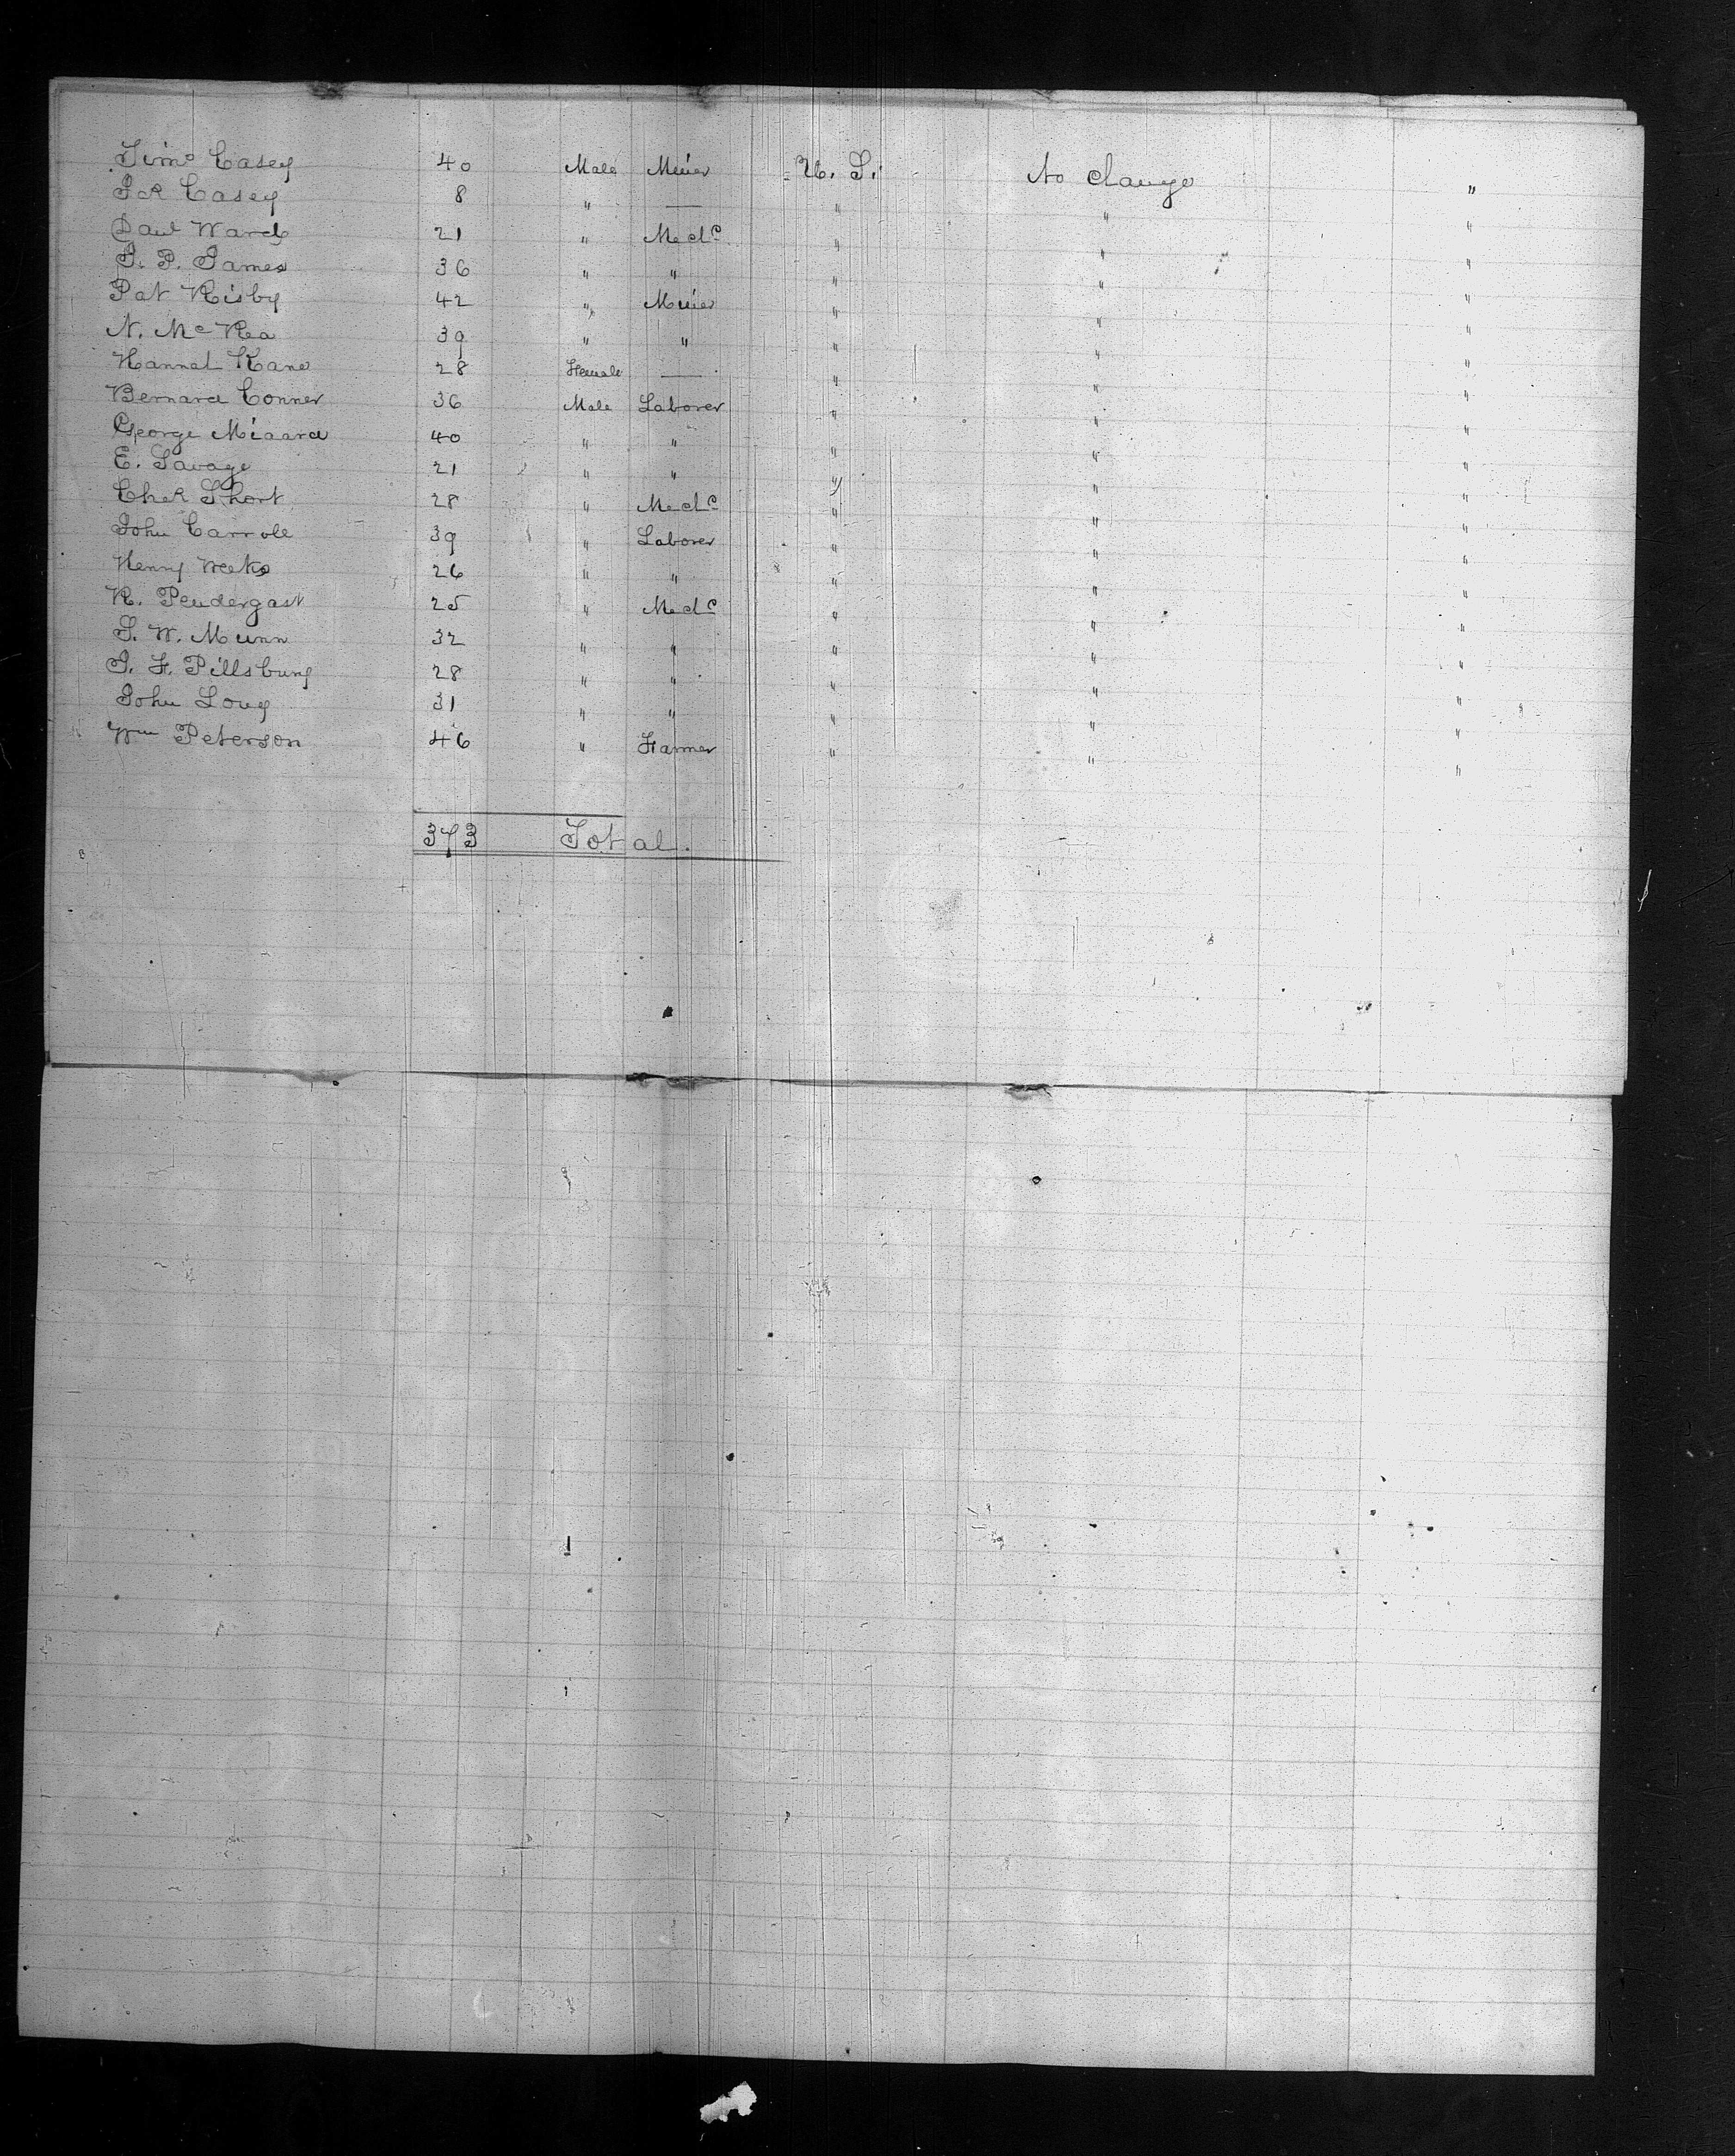 Timo Casey 40 Male Miner U. S. No change "
Jas Casey 8 " — " " "
Danl Ward 21 " Mechc " " "
J. P. James 36 " " " " "
Pat Risby 42 " Miner " " "
N. McRea 39 " " " " "
Hannah Kane 28 Female — " " "
Bernard Conner 36 Male Laborer " " "
George 40 " " " " "
E. Savage 21 " " " " "
Short 28 " Mechc " " "
John Carroll 39 " Laborer " " "
Henry Weeks 26 " " " " "
R. Pendergast 25 " Mechc " " "
S. W. Munn 32 " " " " "
J. F. Pillsbury 28 " " " " "
John Long 31 " " " " "
Wm Peterson 46 " Farmer " " "
373 Total.